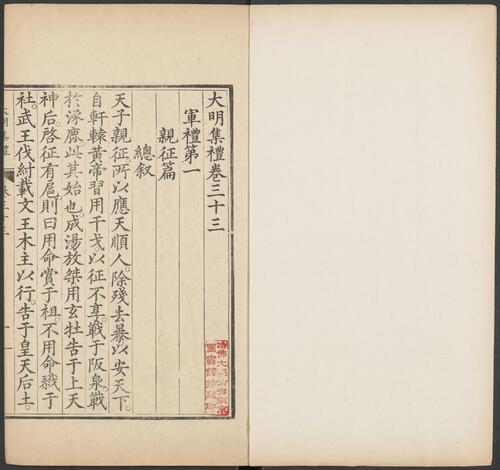 大明集禮卷三十三
軍禮第一
親征篇
總叙
天子親征所以應天順人除殘去暴以安天下。
自軒轅黃帝習用干戈以征不享戰于阪泉戰
於涿鹿此其始也成湯放桀用玄牡告于上天
神后啓征有扈則曰用命賞于祖不用命戮于
社武王伐紂載文王木主以行告于皇天后土。